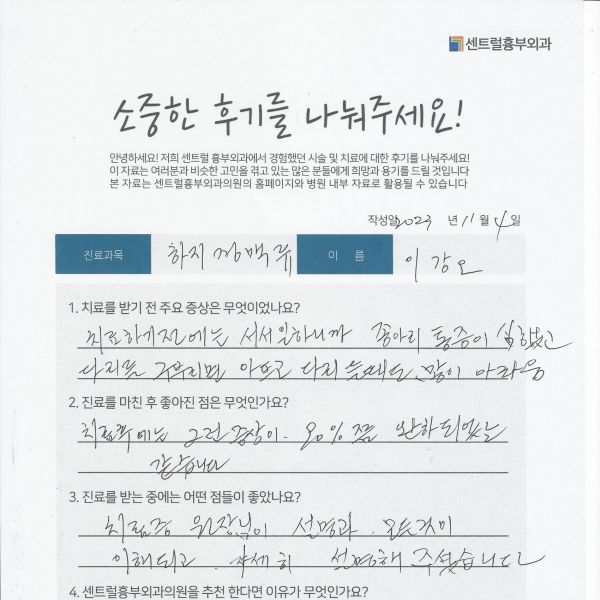 센트럴흉부외과
소중한 후기를 나눠주세요!
안녕하세요! 저희 센트럴 흉부외과에서 경험했던 시술 및 치료에 대한 후기를 나눠주세요!
이 자료는 여러분과 비슷한 고민을 겪고 있는 많은 분들에게 희망과 용기를 드릴 것입니다
본 자료는 센트럴흉부외과의원의 홈페이지와 병원 내부 자료로 활용될 수 있습니다
작성일 2023 년 11 월 4 일
진료과목 하지 정맥류 이 름 이강오
1. 치료를 받기 전 주요 증상은 무엇이었나요?
치료하기전에는 서서일하니까 종아리 통증이 심했고
다리를 구부리면 아프고 다리 많이
2. 진료를 마친 후 좋아진 점은 무엇인가요?
치료후에는 그런 증상이 90% 쯤 완화되었는
같습니다
3. 진료를 받는 중에는 어떤 점들이 좋았나요?
치료중 원장님이 설명과 모든것이
이해되고 자세히 설명해 주셨습니다
4. 센트럴흉부외과의원을 추천 한다면 이유가 무엇인가요?